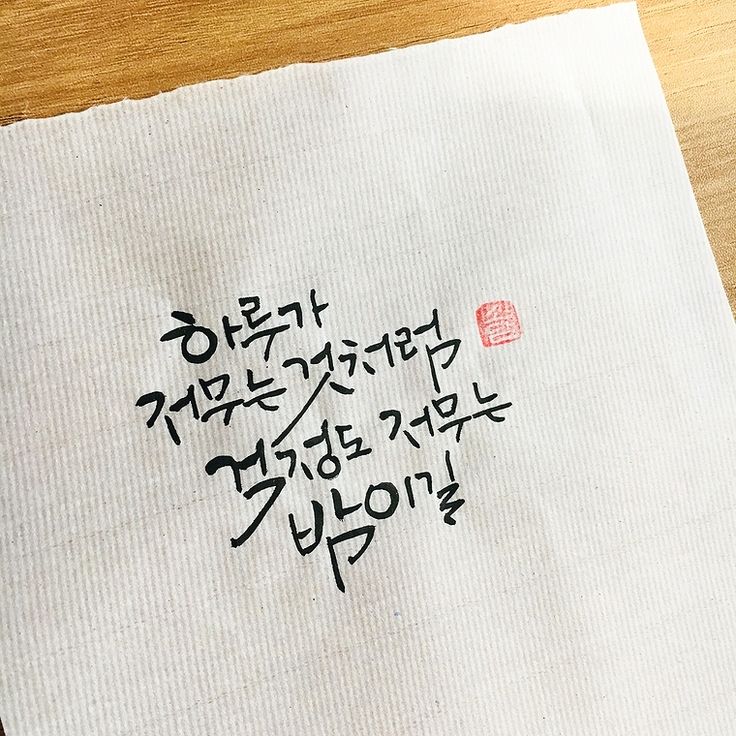 하루가
저무는 것처럼
걱정도 저무는
밤이길